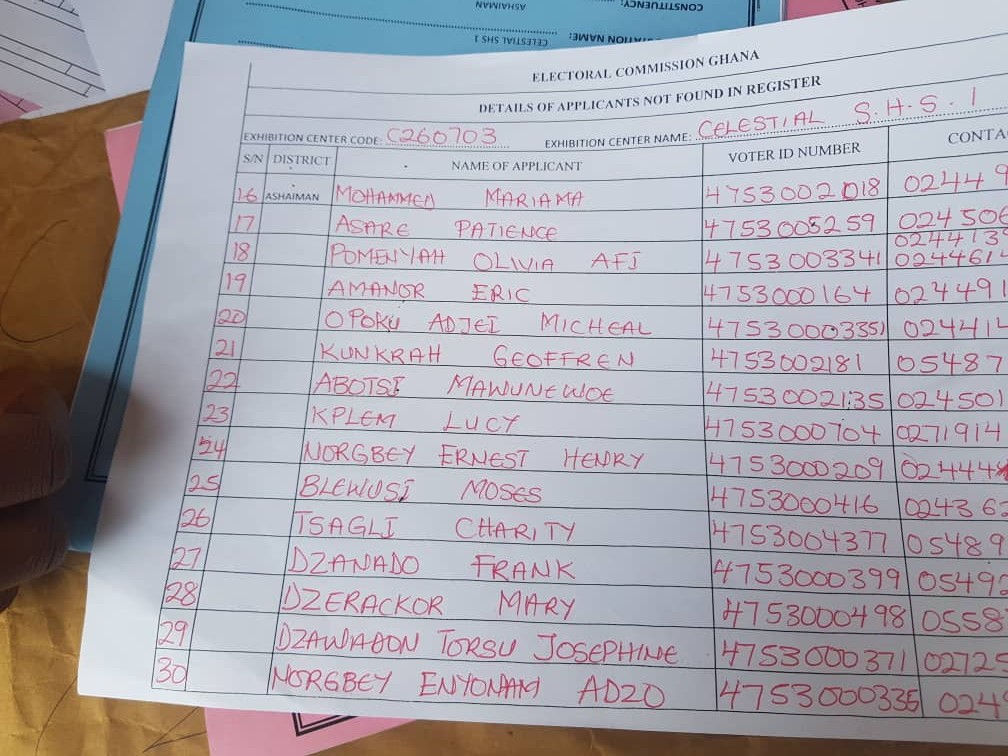 CONSTITUENCY:
ASHAIMAN
NAME:
CELESTIAL SHS 1
ELECTORAL COMMISSION GHANA
DETAILS OF APPLICANTS NOT FOUND IN REGISTER
EXHIBITION CENTER CODE: C260703 EXHIBITION CENTER NAME: CELESTIAL S.H.S. 1
S/N DISTRICT NAME OF APPLICANT VOTER ID NUMBER CONTA
16 ASHAIMAN MOHAMMED MARIAMA 4753002018 02449
17 ASARE PATIENCE 4753005259 024500
0244139
18 POMENYAH OLIVIA AFI 4753003341 0244614
19 AMANOR ERIC 4753000164 024491
20 OPOKU ADJEI MICHEAL 47530003351 024411
21 KUNKRAH GEOFFREN 4753002181 05487
22 ABOTSI MAWUNEWOE 4753002135 024501
23 KPLEM LUCY 4753000704 0271914
24 NORGBEY ERNEST HENRY 4753000209 02444
25 BLEWUSI MOSES 4753000416 024362
26 TSAGLI CHARITY 4753004377 05489
27 DZANADO FRANK 4753000399 05492
28 DZERACKOR MARY 4753000498 0558
29 TORSU JOSEPHINE 4753000371 02725
30 NORGBEY ENYONAM ADZO 4753000336 024